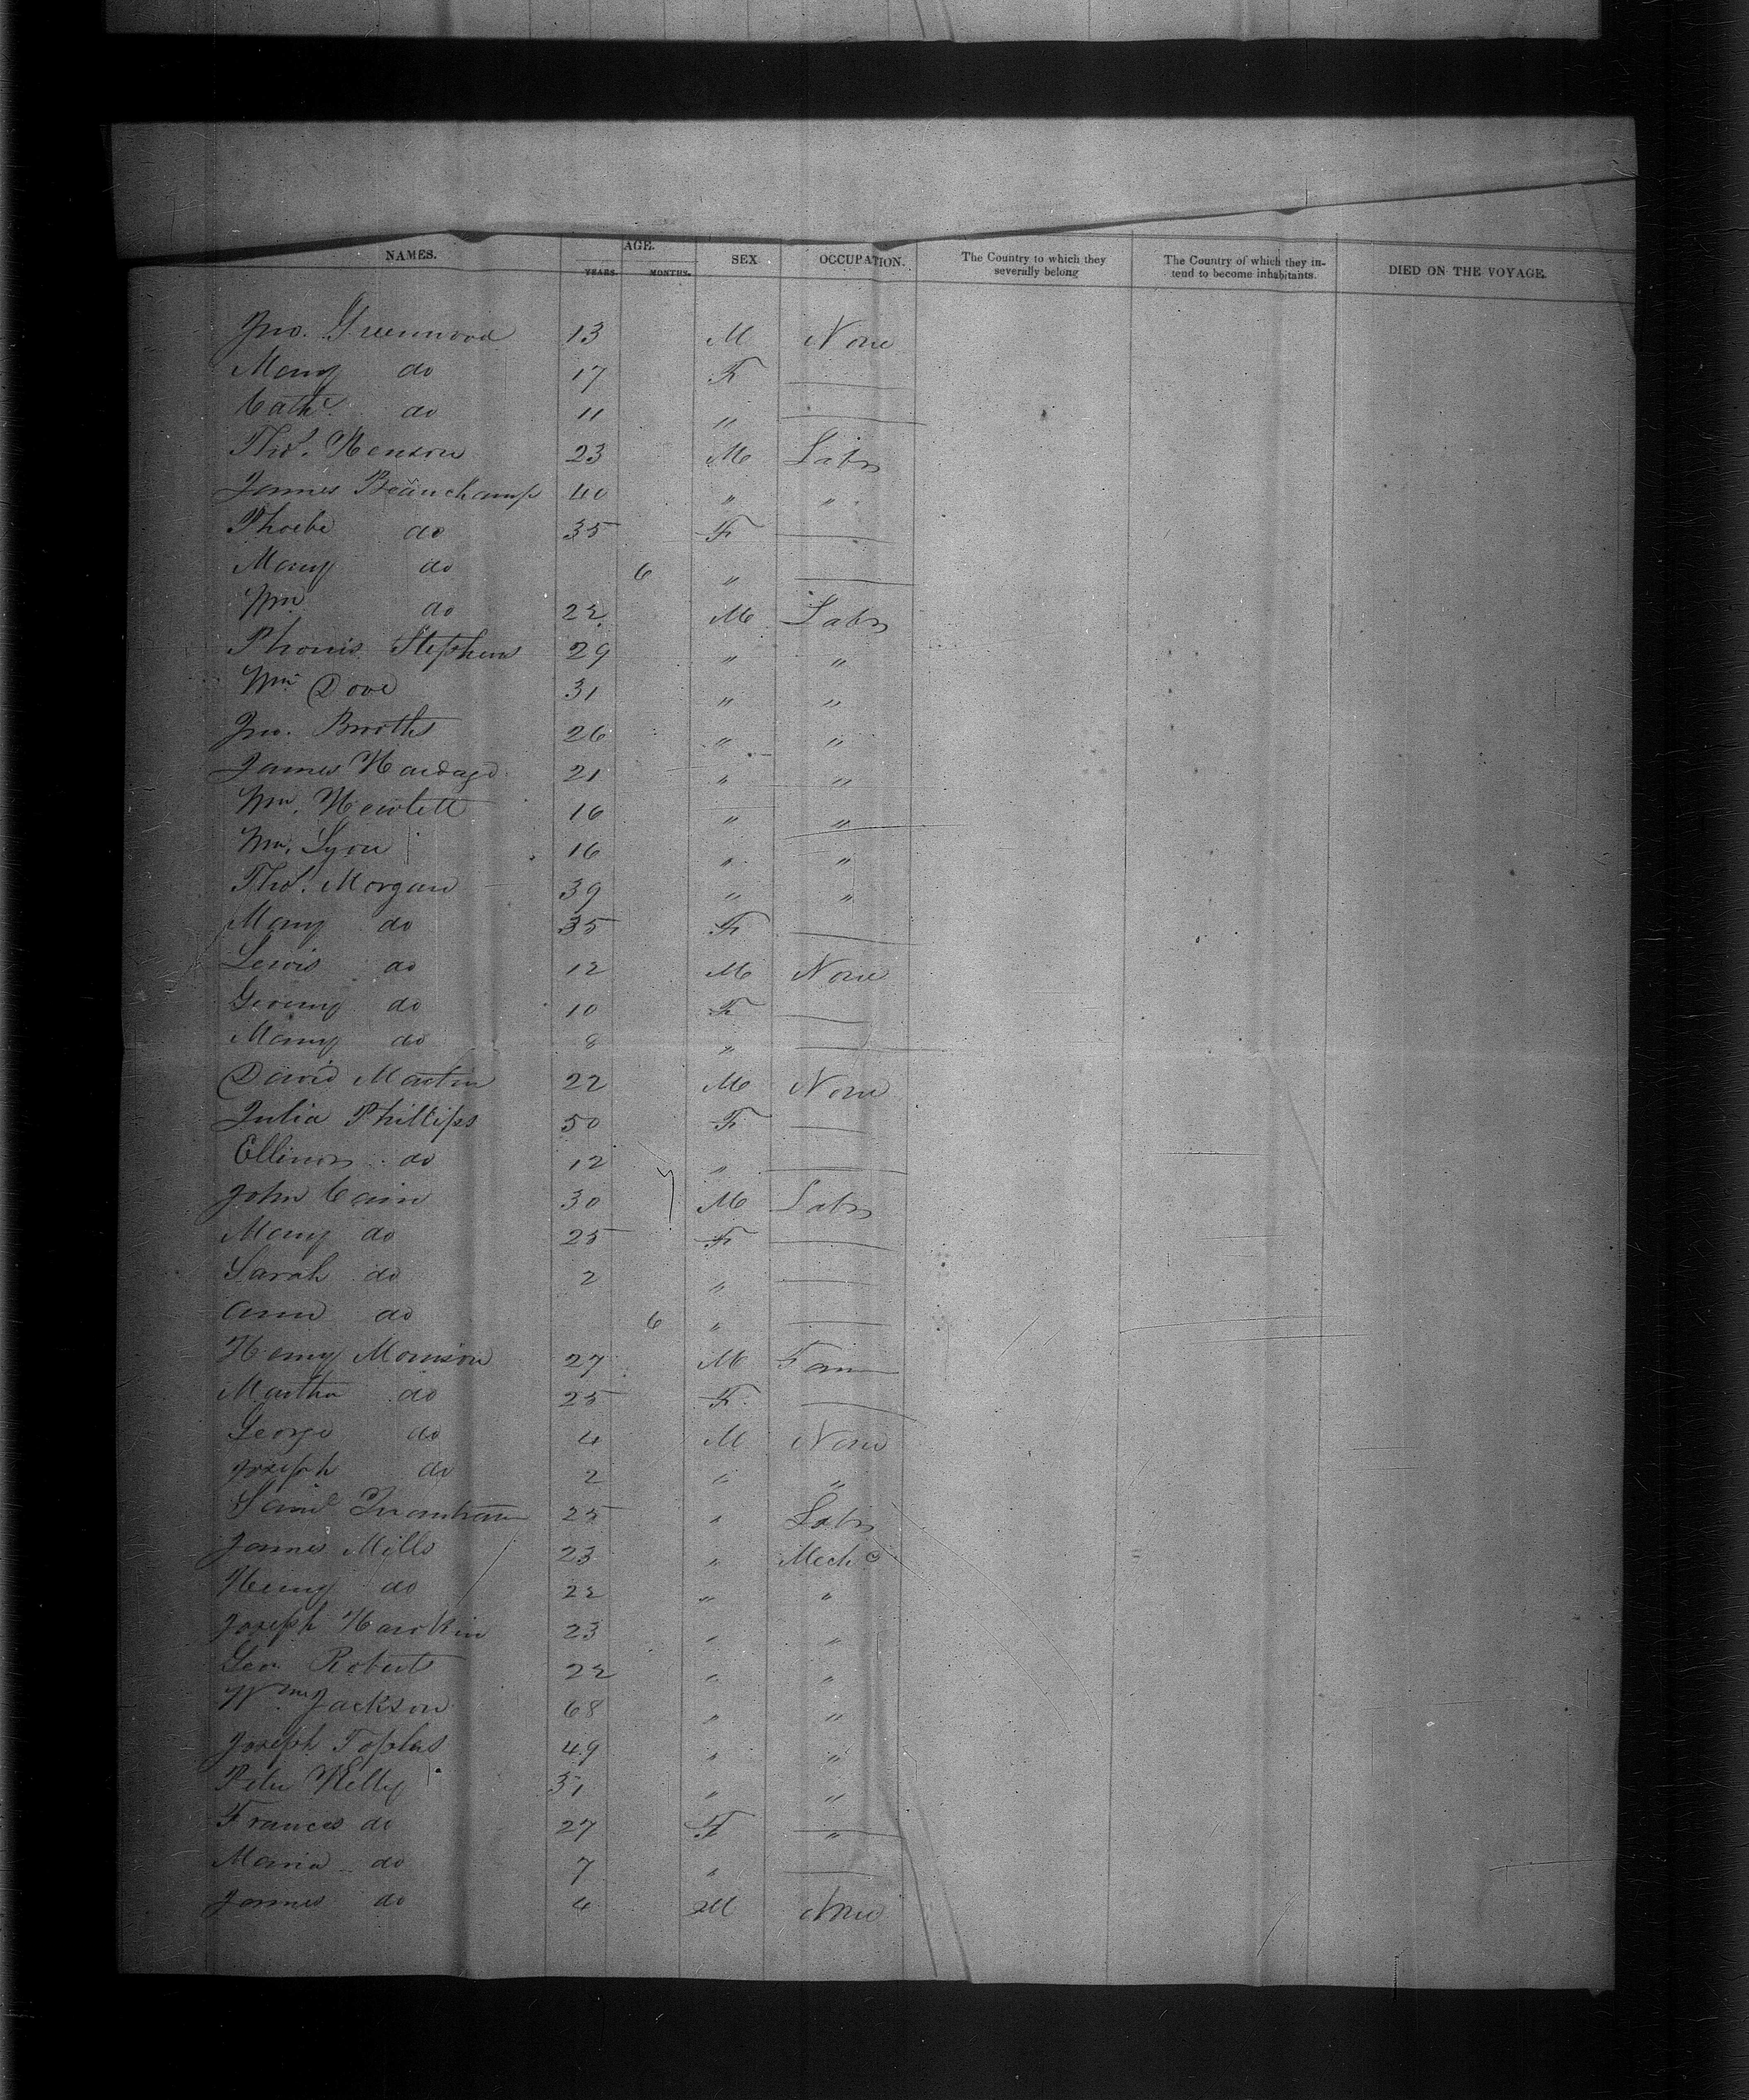 NAMES. AGE. YEARS. MONTHS. SEX OCCUPATION. The Country to which they severally belong The Country of which they intend to become inhabitants. DIED ON THE VOYAGE.
Jno. Greenwood 13 M None
Mary do 17 F
Cathe do 11 "
Thos. Henson 23 M Labr
James Beauchamp 40 " "
Phoebe do 35 F
Mary do 6 "
Wm do 22 M Labr
Stephens 29 " "
Wm Dove 31 " "
Jno. 26 " "
James 21 " "
Wm. Hewlett 16 " "
Wm. Lyon 16 " "
Thos. Morgan 39 " "
Mary do 35 F
Lewis do 12 M None
do 10 F
Mary do 8 "
David Martin 22 M None
Julia Phillips 50 F
Ellinor do 12 "
John Cain 30 M Labr
Mary do 25 F
Sarah do 2 "
Ann do 6 "
Henry Morrison 27 M Farm
Martha do 25 F
George do 4 M None
Joseph do 2 " "
Saml 25 " Labr
James Mills 23 " Mechc
Henry do 22 " "
Joseph Hawkin 23 " "
Geo. Roberts 22 " "
Wm. Jackson 68 " "
Joseph 49 " "
Peter Kelly 31 " "
Frances do 27 F "
Maria do 7 "
James do 4 M None